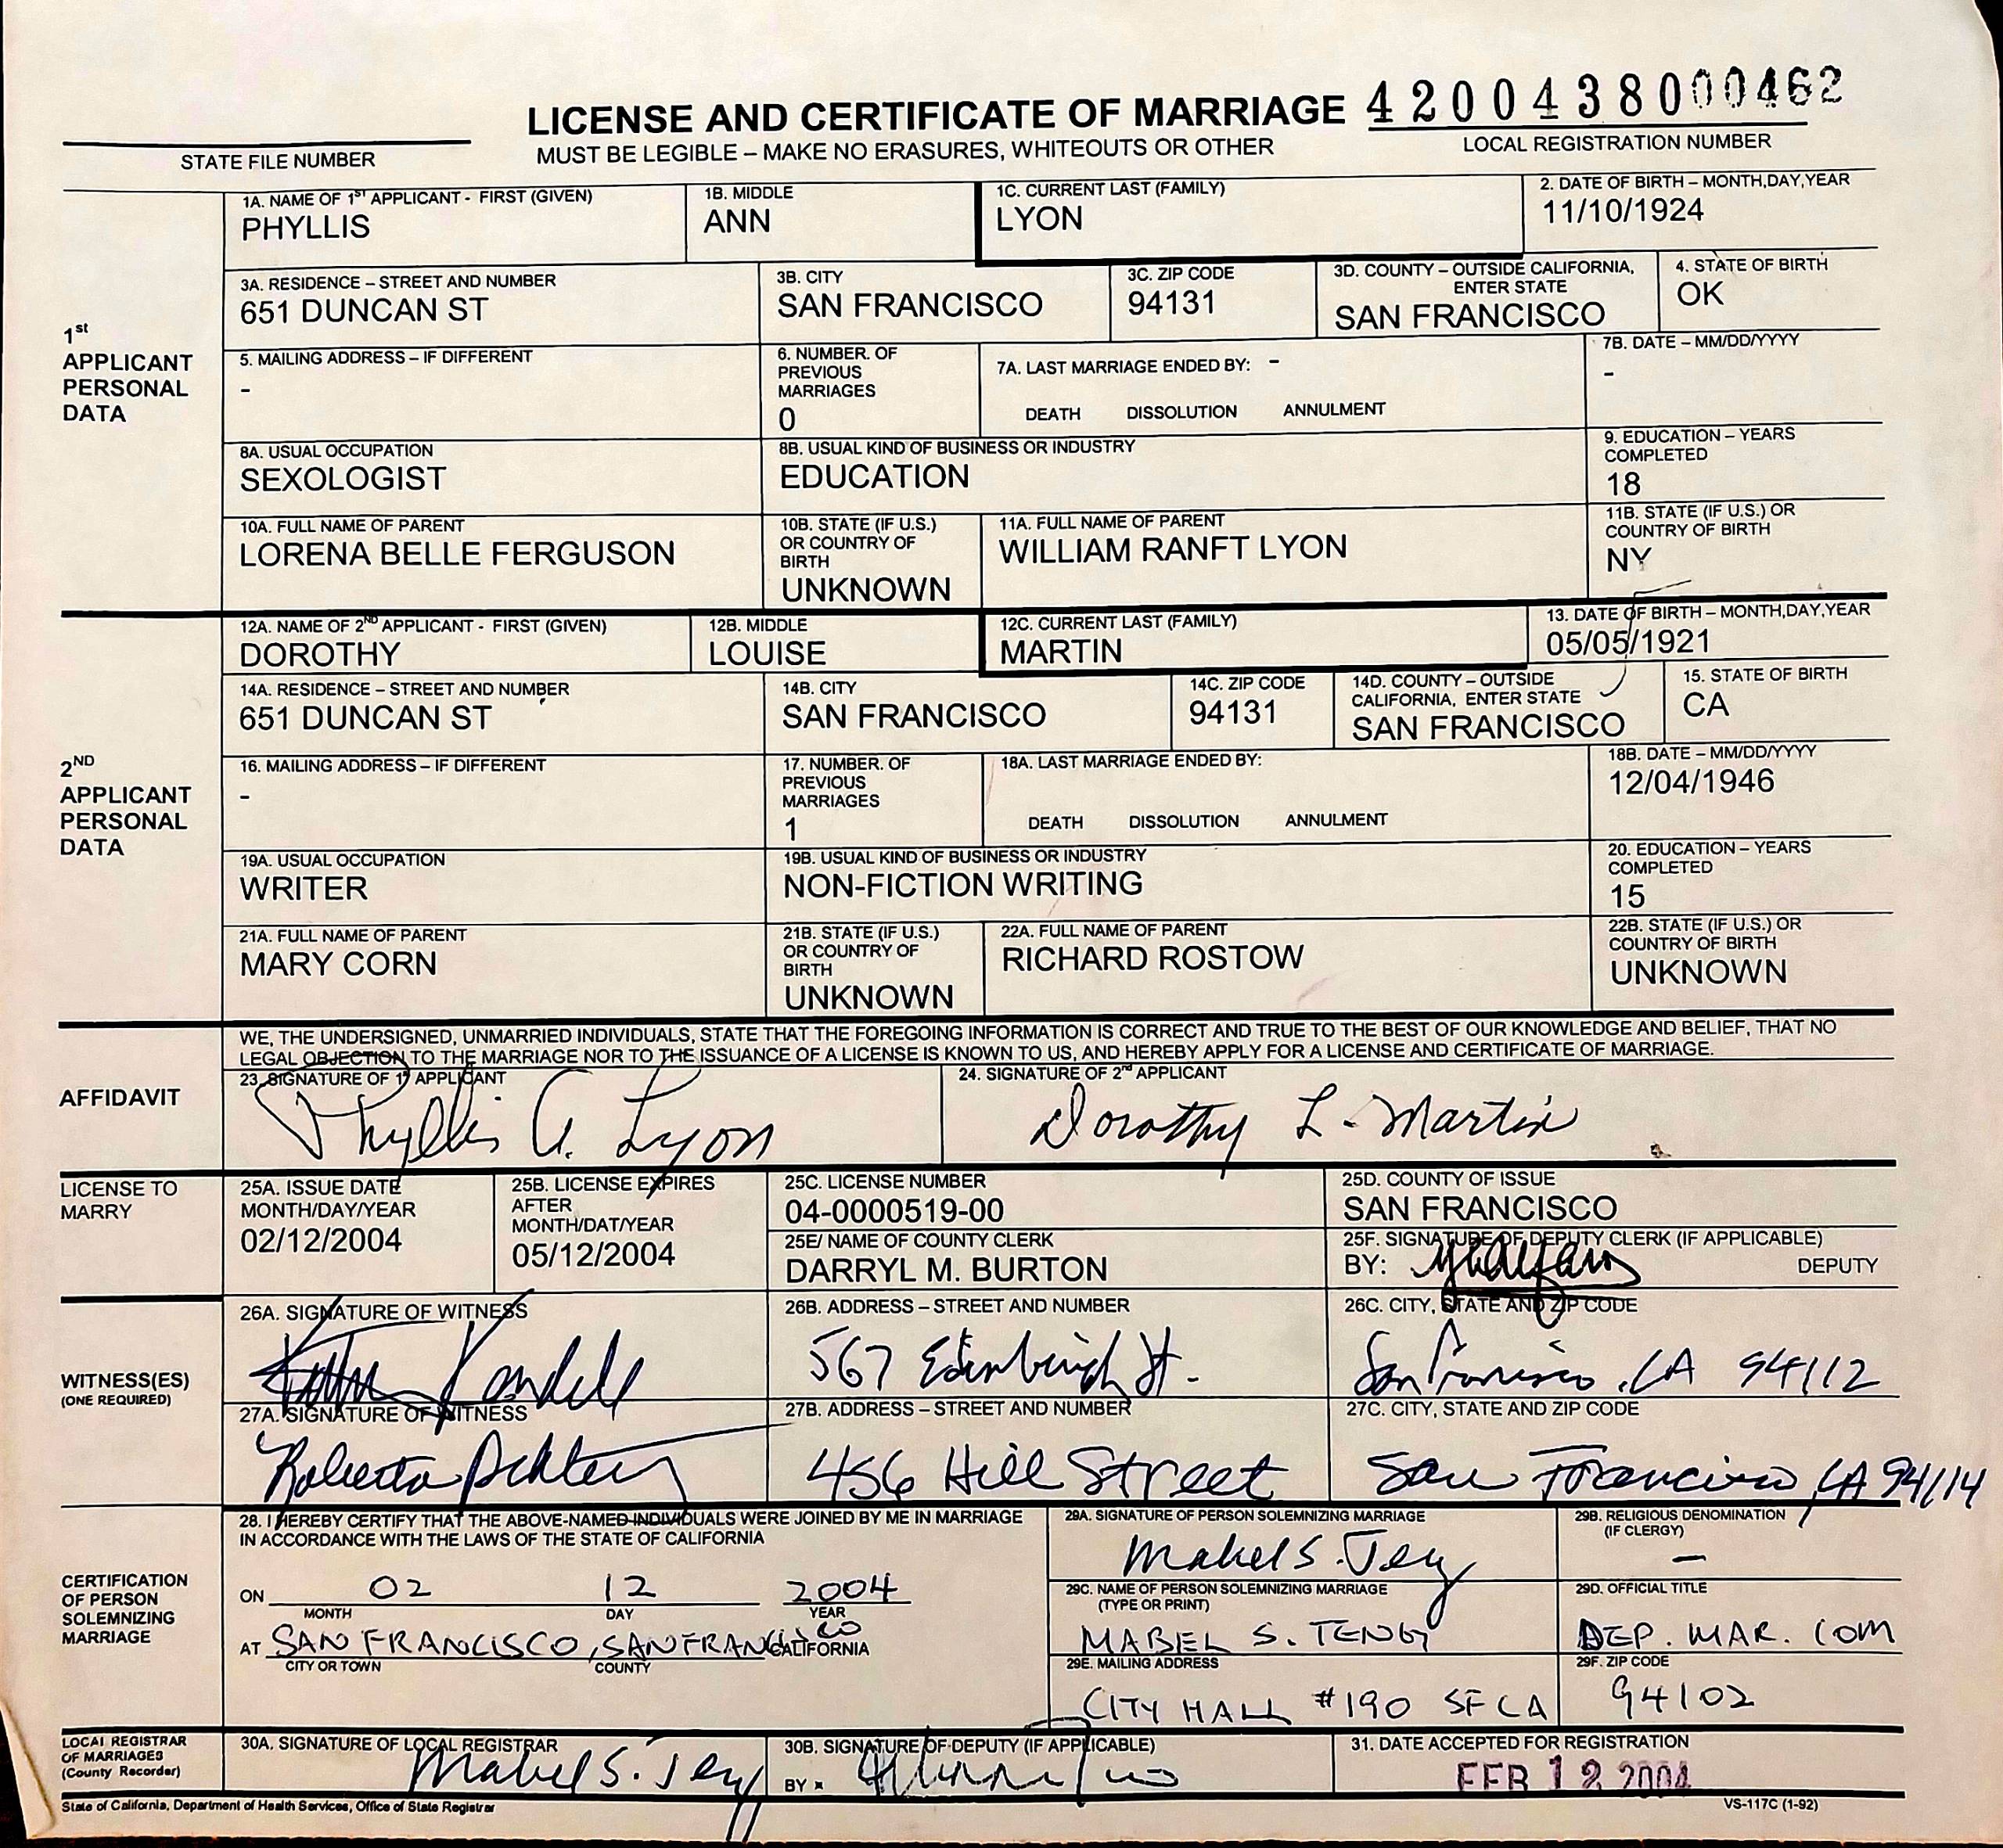 LICENSE AND CERTIFICATE OF MARRIAGE 4200438000462
STATE FILE NUMBER
MUST BE LEGIBLE – MAKE NO ERASURES, WHITEOUTS OR OTHER
LOCAL REGISTRATION NUMBER
1st APPLICANT PERSONAL DATA
1A. NAME OF 1ST APPLICANT - FIRST (GIVEN)
PHYLLIS
1B. MIDDLE
ANN
1C. CURRENT LAST (FAMILY)
LYON
2. DATE OF BIRTH – MONTH,DAY,YEAR
11/10/1924
3A. RESIDENCE – STREET AND NUMBER
651 DUNCAN ST
3B. CITY
SAN FRANCISCO
3C. ZIP CODE
94131
3D. COUNTY – OUTSIDE CALIFORNIA,
ENTER STATE
SAN FRANCISCO
4. STATE OF BIRTH
OK
5. MAILING ADDRESS – IF DIFFERENT
-
6. NUMBER. OF
PREVIOUS
MARRIAGES
0
7A. LAST MARRIAGE ENDED BY: -
DEATH DISSOLUTION ANNULMENT
7B. DATE – MM/DD/YYYY
-
8A. USUAL OCCUPATION
SEXOLOGIST
8B. USUAL KIND OF BUSINESS OR INDUSTRY
EDUCATION
9. EDUCATION – YEARS
COMPLETED
18
10A. FULL NAME OF PARENT
LORENA BELLE FERGUSON
10B. STATE (IF U.S.)
OR COUNTRY OF
BIRTH
UNKNOWN
11A. FULL NAME OF PARENT
WILLIAM RANFT LYON
11B. STATE (IF U.S.) OR
COUNTRY OF BIRTH
NY
2ND APPLICANT PERSONAL DATA
12A. NAME OF 2ND APPLICANT - FIRST (GIVEN)
DOROTHY
12B. MIDDLE
LOUISE
12C. CURRENT LAST (FAMILY)
MARTIN
13. DATE OF BIRTH – MONTH,DAY,YEAR
05/05/1921
14A. RESIDENCE – STREET AND NUMBER
651 DUNCAN ST
14B. CITY
SAN FRANCISCO
14C. ZIP CODE
94131
14D. COUNTY – OUTSIDE
CALIFORNIA, ENTER STATE
SAN FRANCISCO
15. STATE OF BIRTH
CA
16. MAILING ADDRESS – IF DIFFERENT
-
17. NUMBER. OF
PREVIOUS
MARRIAGES
1
18A. LAST MARRIAGE ENDED BY:
DEATH DISSOLUTION ANNULMENT
18B. DATE – MM/DD/YYYY
12/04/1946
19A. USUAL OCCUPATION
WRITER
19B. USUAL KIND OF BUSINESS OR INDUSTRY
NON-FICTION WRITING
20. EDUCATION – YEARS
COMPLETED
15
21A. FULL NAME OF PARENT
MARY CORN
21B. STATE (IF U.S.)
OR COUNTRY OF
BIRTH
UNKNOWN
22A. FULL NAME OF PARENT
RICHARD ROSTOW
22B. STATE (IF U.S.) OR
COUNTRY OF BIRTH
UNKNOWN
AFFIDAVIT
WE, THE UNDERSIGNED, UNMARRIED INDIVIDUALS, STATE THAT THE FOREGOING INFORMATION IS CORRECT AND TRUE TO THE BEST OF OUR KNOWLEDGE AND BELIEF, THAT NO
LEGAL OBJECTION TO THE MARRIAGE NOR TO THE ISSUANCE OF A LICENSE IS KNOWN TO US, AND HEREBY APPLY FOR A LICENSE AND CERTIFICATE OF MARRIAGE.
23. SIGNATURE OF 1st APPLICANT
Phyllis A. Lyon
24. SIGNATURE OF 2nd APPLICANT
Dorothy L. Martin
LICENSE TO
MARRY
25A. ISSUE DATE
MONTH/DAY/YEAR
02/12/2004
25B. LICENSE EXPIRES
AFTER
MONTH/DAT/YEAR
05/12/2004
25C. LICENSE NUMBER
04-0000519-00
25D. COUNTY OF ISSUE
SAN FRANCISCO
25E/ NAME OF COUNTY CLERK
DARRYL M. BURTON
25F. SIGNATURE OF DEPUTY CLERK (IF APPLICABLE)
BY: DEPUTY
WITNESS(ES)
(ONE REQUIRED)
26A. SIGNATURE OF WITNESS
Kendell
26B. ADDRESS – STREET AND NUMBER
567 Edinburgh St.
26C. CITY, STATE AND ZIP CODE
San Francisco, CA 94112
27A. SIGNATURE OF WITNESS
Roberta Achtenberg
27B. ADDRESS – STREET AND NUMBER
456 Hill Street
27C. CITY, STATE AND ZIP CODE
San Francisco, CA 94114
CERTIFICATION
OF PERSON
SOLEMNIZING
MARRIAGE
28. I HEREBY CERTIFY THAT THE ABOVE-NAMED INDIVIDUALS WERE JOINED BY ME IN MARRIAGE
IN ACCORDANCE WITH THE LAWS OF THE STATE OF CALIFORNIA
ON 02 12 2004
MONTH DAY YEAR
AT SAN FRANCISCO, SAN FRANCISCO CALIFORNIA
CITY OR TOWN COUNTY
29A. SIGNATURE OF PERSON SOLEMNIZING MARRIAGE
Mabel S. Teng
29B. RELIGIOUS DENOMINATION
(IF CLERGY)
—
29C. NAME OF PERSON SOLEMNIZING MARRIAGE
(TYPE OR PRINT)
MABEL S. TENG
29D. OFFICIAL TITLE
DEP. MAR. COM
29E. MAILING ADDRESS
CITY HALL #190 SF CA
29F. ZIP CODE
94102
LOCAL REGISTRAR
OF MARRIAGES
(County Recorder)
30A. SIGNATURE OF LOCAL REGISTRAR
Mabel S. Teng
30B. SIGNATURE OF DEPUTY (IF APPLICABLE)
BY
31. DATE ACCEPTED FOR REGISTRATION
FEB 12 2004
State of California, Department of Health Services, Office of State Registrar
VS-117C (1-92)